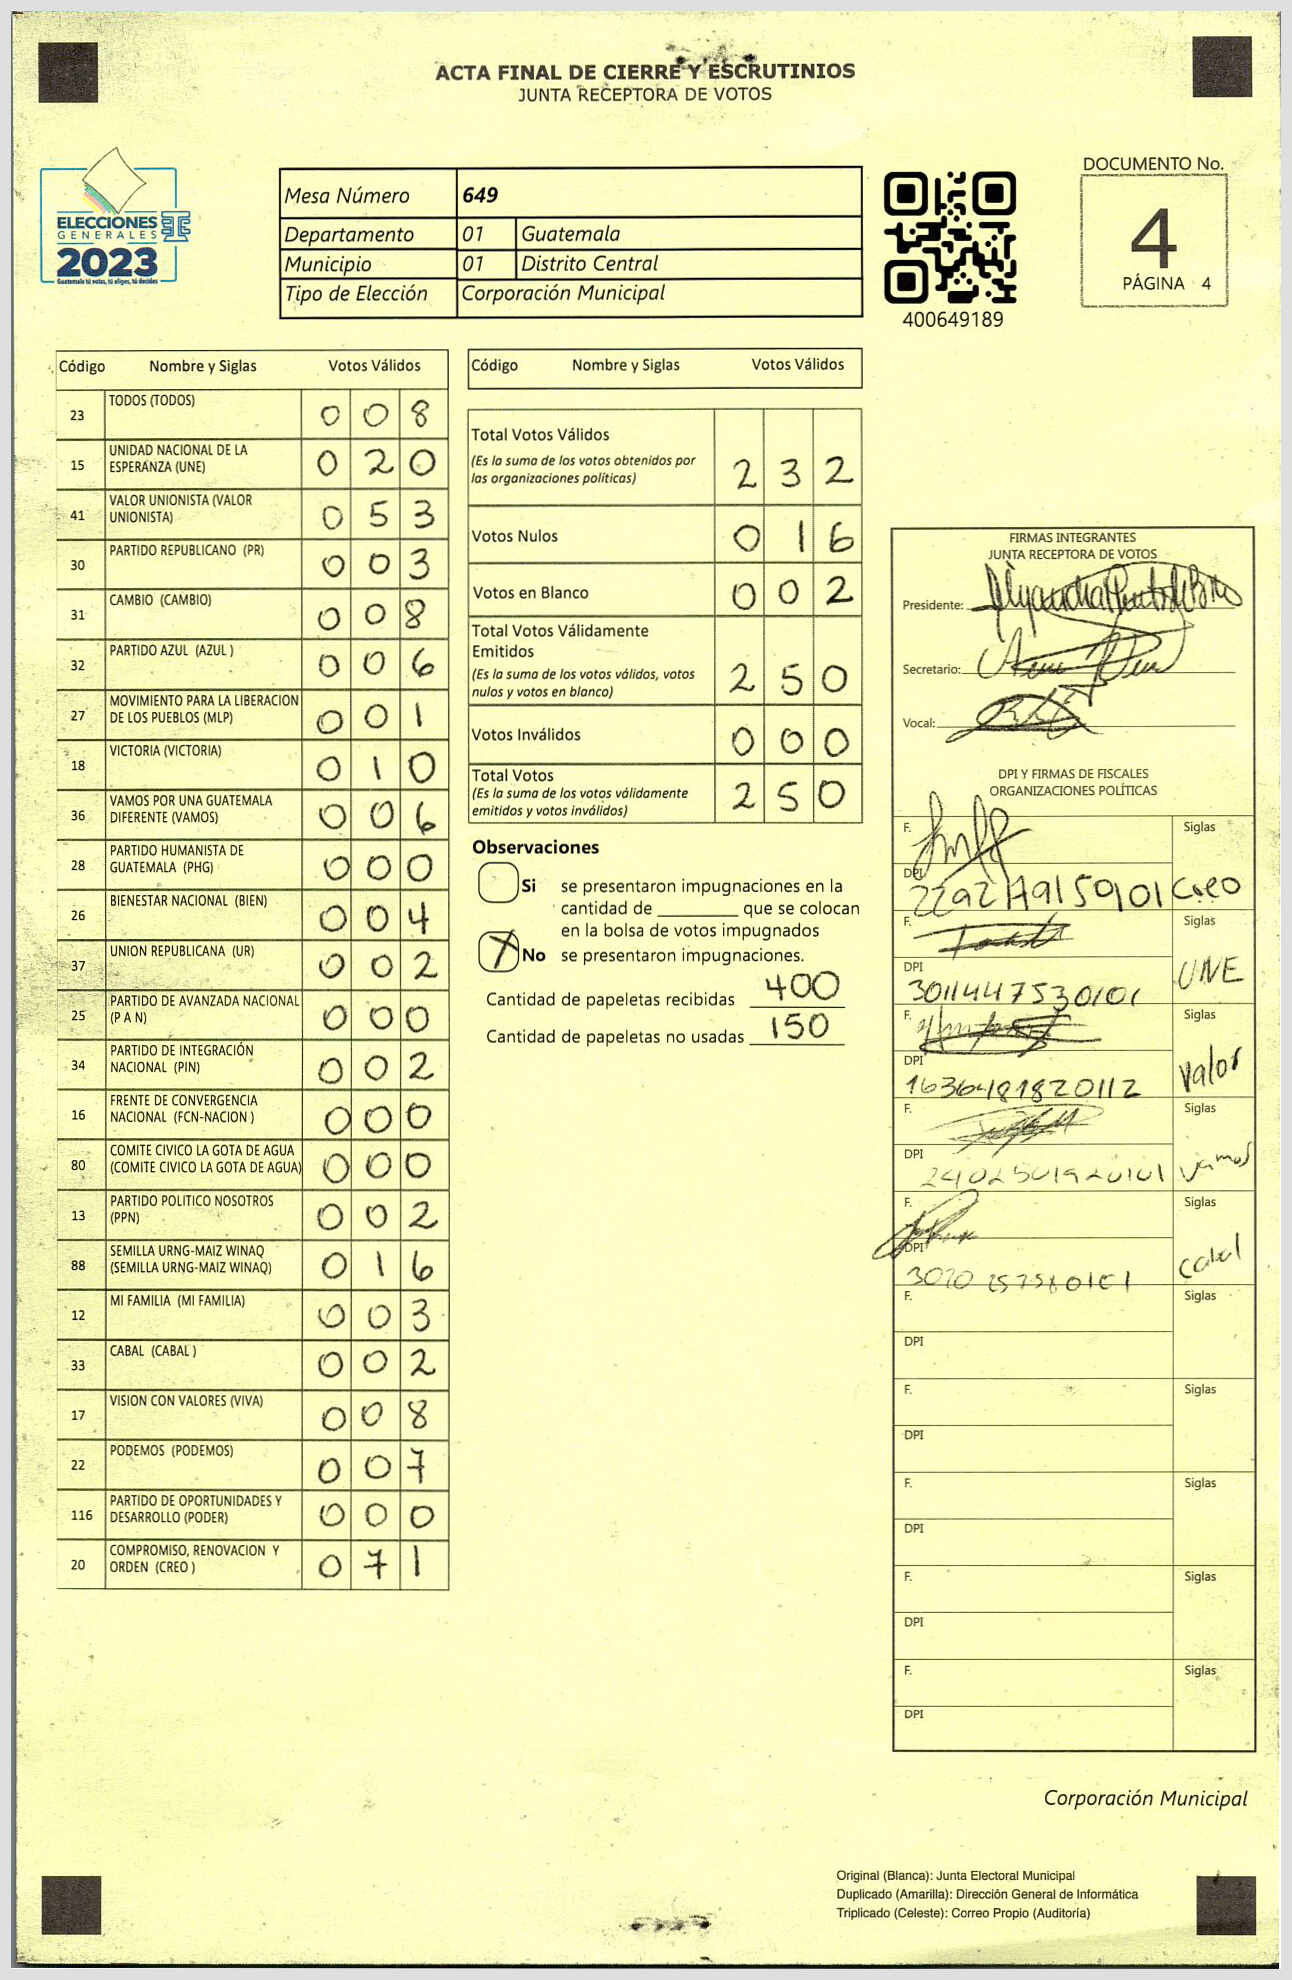 ACTA FINAL DE CIERRE Y ESCRUTINIOS
JUNTA RECEPTORA DE VOTOS
ELECCIONES
GENERALES
2023
Guatemala tú votas, tú eliges, tú decides
Mesa Número 649
Departamento 01 Guatemala
Municipio 01 Distrito Central
Tipo de Elección Corporación Municipal
400649189
DOCUMENTO No.
4
PÁGINA 4
Código Nombre y Siglas Votos Válidos
23 TODOS (TODOS) 0 0 8
15 UNIDAD NACIONAL DE LA
ESPERANZA (UNE) 0 2 0
41 VALOR UNIONISTA (VALOR
UNIONISTA) 0 5 3
30 PARTIDO REPUBLICANO (PR) 0 0 3
31 CAMBIO (CAMBIO) 0 0 8
32 PARTIDO AZUL (AZUL ) 0 0 6
27 MOVIMIENTO PARA LA LIBERACION
DE LOS PUEBLOS (MLP) 0 0 1
18 VICTORIA (VICTORIA) 0 1 0
36 VAMOS POR UNA GUATEMALA
DIFERENTE (VAMOS) 0 0 6
28 PARTIDO HUMANISTA DE
GUATEMALA (PHG) 0 0 0
26 BIENESTAR NACIONAL (BIEN) 0 0 4
37 UNION REPUBLICANA (UR) 0 0 2
25 PARTIDO DE AVANZADA NACIONAL
(P A N) 0 0 0
34 PARTIDO DE INTEGRACIÓN
NACIONAL (PIN) 0 0 2
16 FRENTE DE CONVERGENCIA
NACIONAL (FCN-NACION ) 0 0 0
80 COMITE CIVICO LA GOTA DE AGUA
(COMITE CIVICO LA GOTA DE AGUA) 0 0 0
13 PARTIDO POLITICO NOSOTROS
(PPN) 0 0 2
88 SEMILLA URNG-MAIZ WINAQ
(SEMILLA URNG-MAIZ WINAQ) 0 1 6
12 MI FAMILIA (MI FAMILIA) 0 0 3
33 CABAL (CABAL ) 0 0 2
17 VISION CON VALORES (VIVA) 0 0 8
22 PODEMOS (PODEMOS) 0 0 7
116 PARTIDO DE OPORTUNIDADES Y
DESARROLLO (PODER) 0 0 0
20 COMPROMISO, RENOVACION Y
ORDEN (CREO ) 0 7 1
Código Nombre y Siglas Votos Válidos
Total Votos Válidos
(Es la suma de los votos obtenidos por
las organizaciones políticas) 2 3 2
Votos Nulos 0 1 6
Votos en Blanco 0 0 2
Total Votos Válidamente
Emitidos
(Es la suma de los votos válidos, votos
nulos y votos en blanco) 2 5 0
Votos Inválidos 0 0 0
Total Votos
(Es la suma de los votos válidamente
emitidos y votos inválidos) 2 5 0
Observaciones
Si se presentaron impugnaciones en la
cantidad de ________ que se colocan
en la bolsa de votos impugnados
X No se presentaron impugnaciones.
Cantidad de papeletas recibidas 400
Cantidad de papeletas no usadas 150
FIRMAS INTEGRANTES
JUNTA RECEPTORA DE VOTOS
Presidente:
Secretario:
Vocal:
DPI Y FIRMAS DE FISCALES
ORGANIZACIONES POLÍTICAS
F. Siglas
DPI
Creo
F. Siglas
DPI
3011447530101 UNE
F. Siglas
DPI
1636481820112 Valor
F. Siglas
DPI
2402501920101 Vamos
F. Siglas
DPI
cabal
F. Siglas
DPI
F. Siglas
DPI
F. Siglas
DPI
F. Siglas
DPI
F. Siglas
DPI
Corporación Municipal
Original (Blanca): Junta Electoral Municipal
Duplicado (Amarilla): Dirección General de Informática
Triplicado (Celeste): Correo Propio (Auditoría)